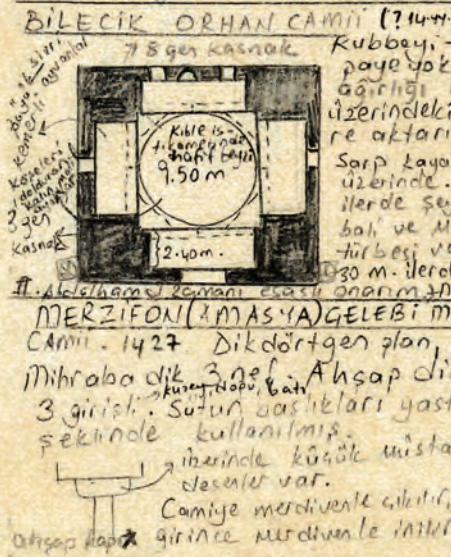 BİLECİK ORHAN CAMİİ (?14.yy.
8 gen kasnak
Kubbeyi
paye yok
ağırlığı
üzerindeki
re aktarı
Sarp kaya
üzerinde.
ilerde Şey
bali ve M
türbesi v
30 m. ilerd
kemerli
Köşeleri
dolduran
kalın
3 gen
kasnak
Kıble is-
hafif beyzi
9.50 m
2.40m.
II. Abdülhamid zamanı esaslı onarım
MERZİFON (AMASYA) ÇELEBİ M
CAMİİ. 1427 Dikdörtgen plan,
Mihraba dik 3 nef. Ahşap di
kuzey, doğu, batı
3 girişli. Sütun başlıkları yast
şeklinde kullanılmış.
üzerinde küçük müsta
desenler var.
Camiye merdivenle çıkılır,
ahşap kapı girince merdivenle inilir